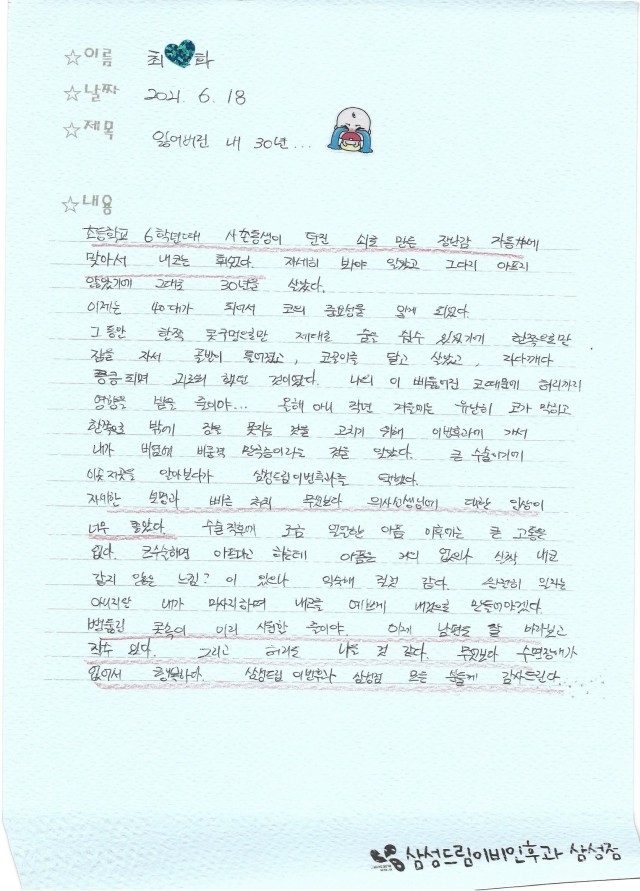 ☆이름 최 화
☆날짜 2021. 6. 18
☆제목 잃어버린 내 30년...
☆내용
초등학교 6학년때 사촌동생이 던진 쇠로 만든 장난감 자동차에
맞아서 내코는 휘었다. 자세히 봐야 알았고 그다지 아프지
않았기에 그대로 30년을 살았다.
이제는 40대가 되어서 코의 중요성을 알게 되었다.
그 동안 한쪽 콧구멍으로만 제대로 숨을 쉴수 있었기에 한쪽으로만
잠을 자서 골반이 틀어졌고, 코골이를 달고 살았고, 자다깨다
킁킁 되며 괴로워 했던 것이었다. 나의 이 삐뚤어진 코때문에 허리까지
영향을 받을 줄이야... 올해 아니 작년 겨울에는 유난히 코가 막히고
한쪽으로 밖에 잠을 못자는 것을 고치기 위해 이비인후과에 가서
내가 비염에 비중격 만곡증이라는 것을 알았다. 큰 수술이기에
이곳저곳을 알아보다가 삼성드림이비인후과를 택했다.
자세한 설명과 빠른 처치 무엇보다 의사선생님에 대한 인상이
너무 좋았다. 수술 직후에 조금 얼얼한 아픔 이후에는 큰 고통은
없다. 코수술하면 아프다고 하는데 아픔은 거의 없으나 신학 내코
같지 않은 느낌? 이 있으나 익숙해 질것 같다. 완전히 일자는
아니지만 내가 마사지하며 내코를 예쁘게 내것으로 만들어야겠다.
뻥뚫린 콧속이 이리 시원한 줄이야. 이제 남편을 잘 바라보고
잘수 있다. 그리고 허리도 나을 것 같다. 무엇보다 수면장애가
없어서 행복하다. 삼성드림 이비인후과 삼성점 모든 분들께 감사드린다.....
삼성드림이비인후과 삼성점